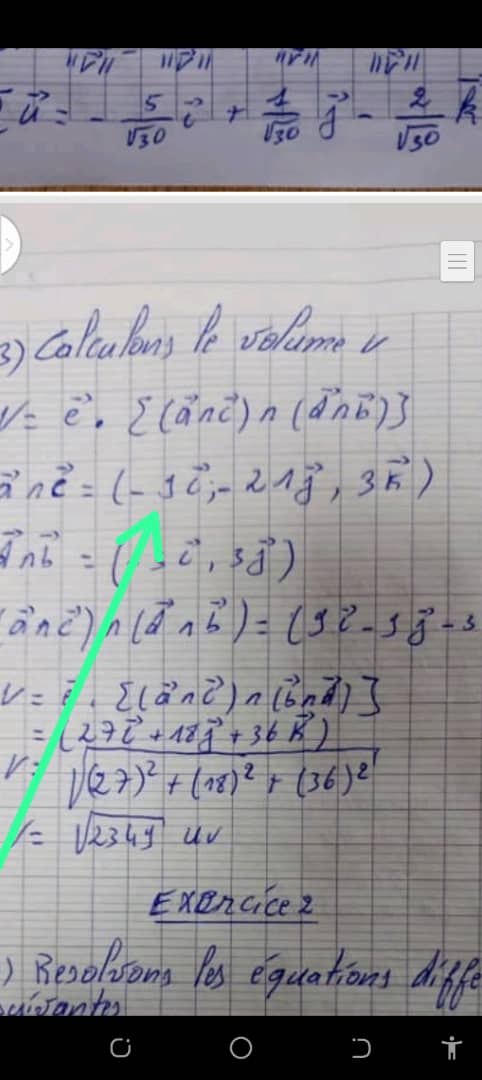 "V⃗" "V⃗" "V⃗" "V⃗"
u⃗ = - 5/√30 i⃗ + 1/√30 j⃗ - 2/√30 k⃗
3) Calculons le volume V
V = e⃗ . [(a⃗∧c⃗)∧(d⃗∧b⃗)]
a⃗∧c⃗ = (-9i⃗, -21j⃗, 3k⃗)
d⃗∧b⃗ = (- i⃗, 3j⃗)
(a⃗∧c⃗)∧(d⃗∧b⃗) = (9i⃗ - 9j⃗ - 3
V = e⃗ . [(a⃗∧c⃗)∧(b⃗∧d⃗)]
= (27i⃗ + 18j⃗ + 36k⃗)
V = √(27)² + (18)² + (36)²
V = √2349 uv
EXErcice 2
) Resolvons les équations diffe
suivantes